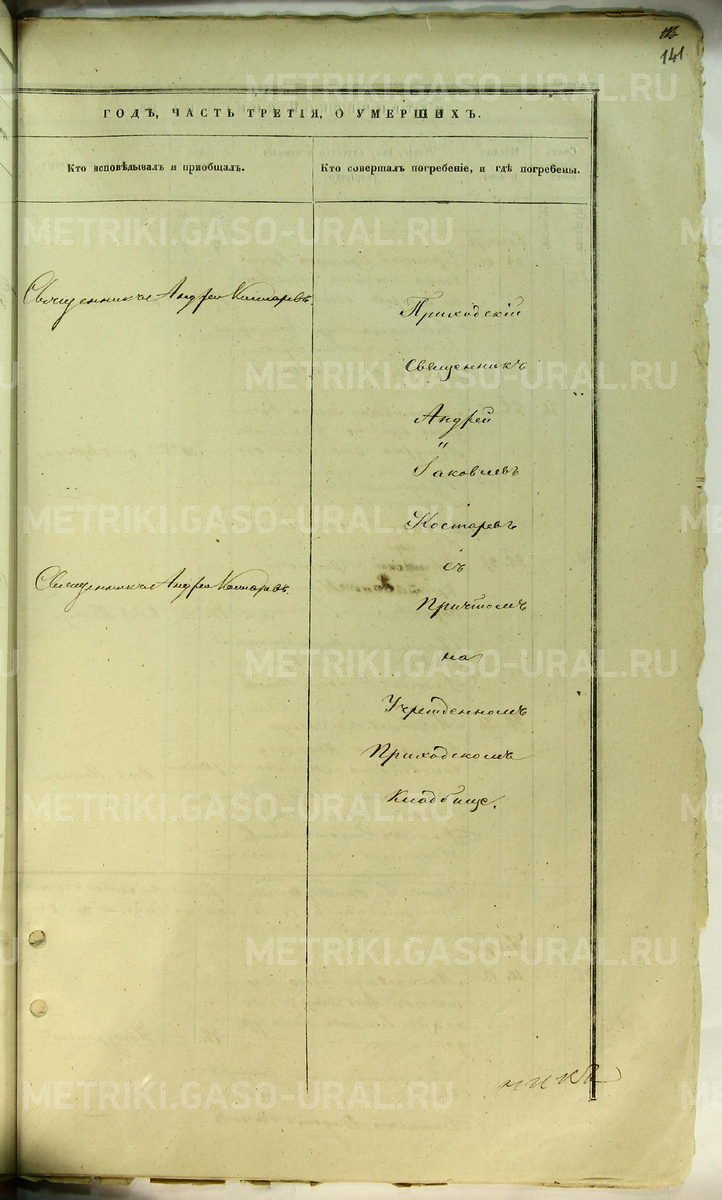 141
ГОДЪ, ЧАСТЬ ТРЕТІЯ, О УМЕРШИХЪ.
Кто исповѣдывалъ и пріобщалъ.
Кто совершалъ погребеніе, и гдѣ погребены.
Священникъ Андрей Костаревъ.
Священникъ Андрей Костаревъ.
Приходскій
Священникъ
Андрей
Іаковлевъ
Костаревъ
съ
Причтомъ
на
Учрежденномъ
Приходскомъ
Кладбище.
METRIKI.GASO-URAL.RU